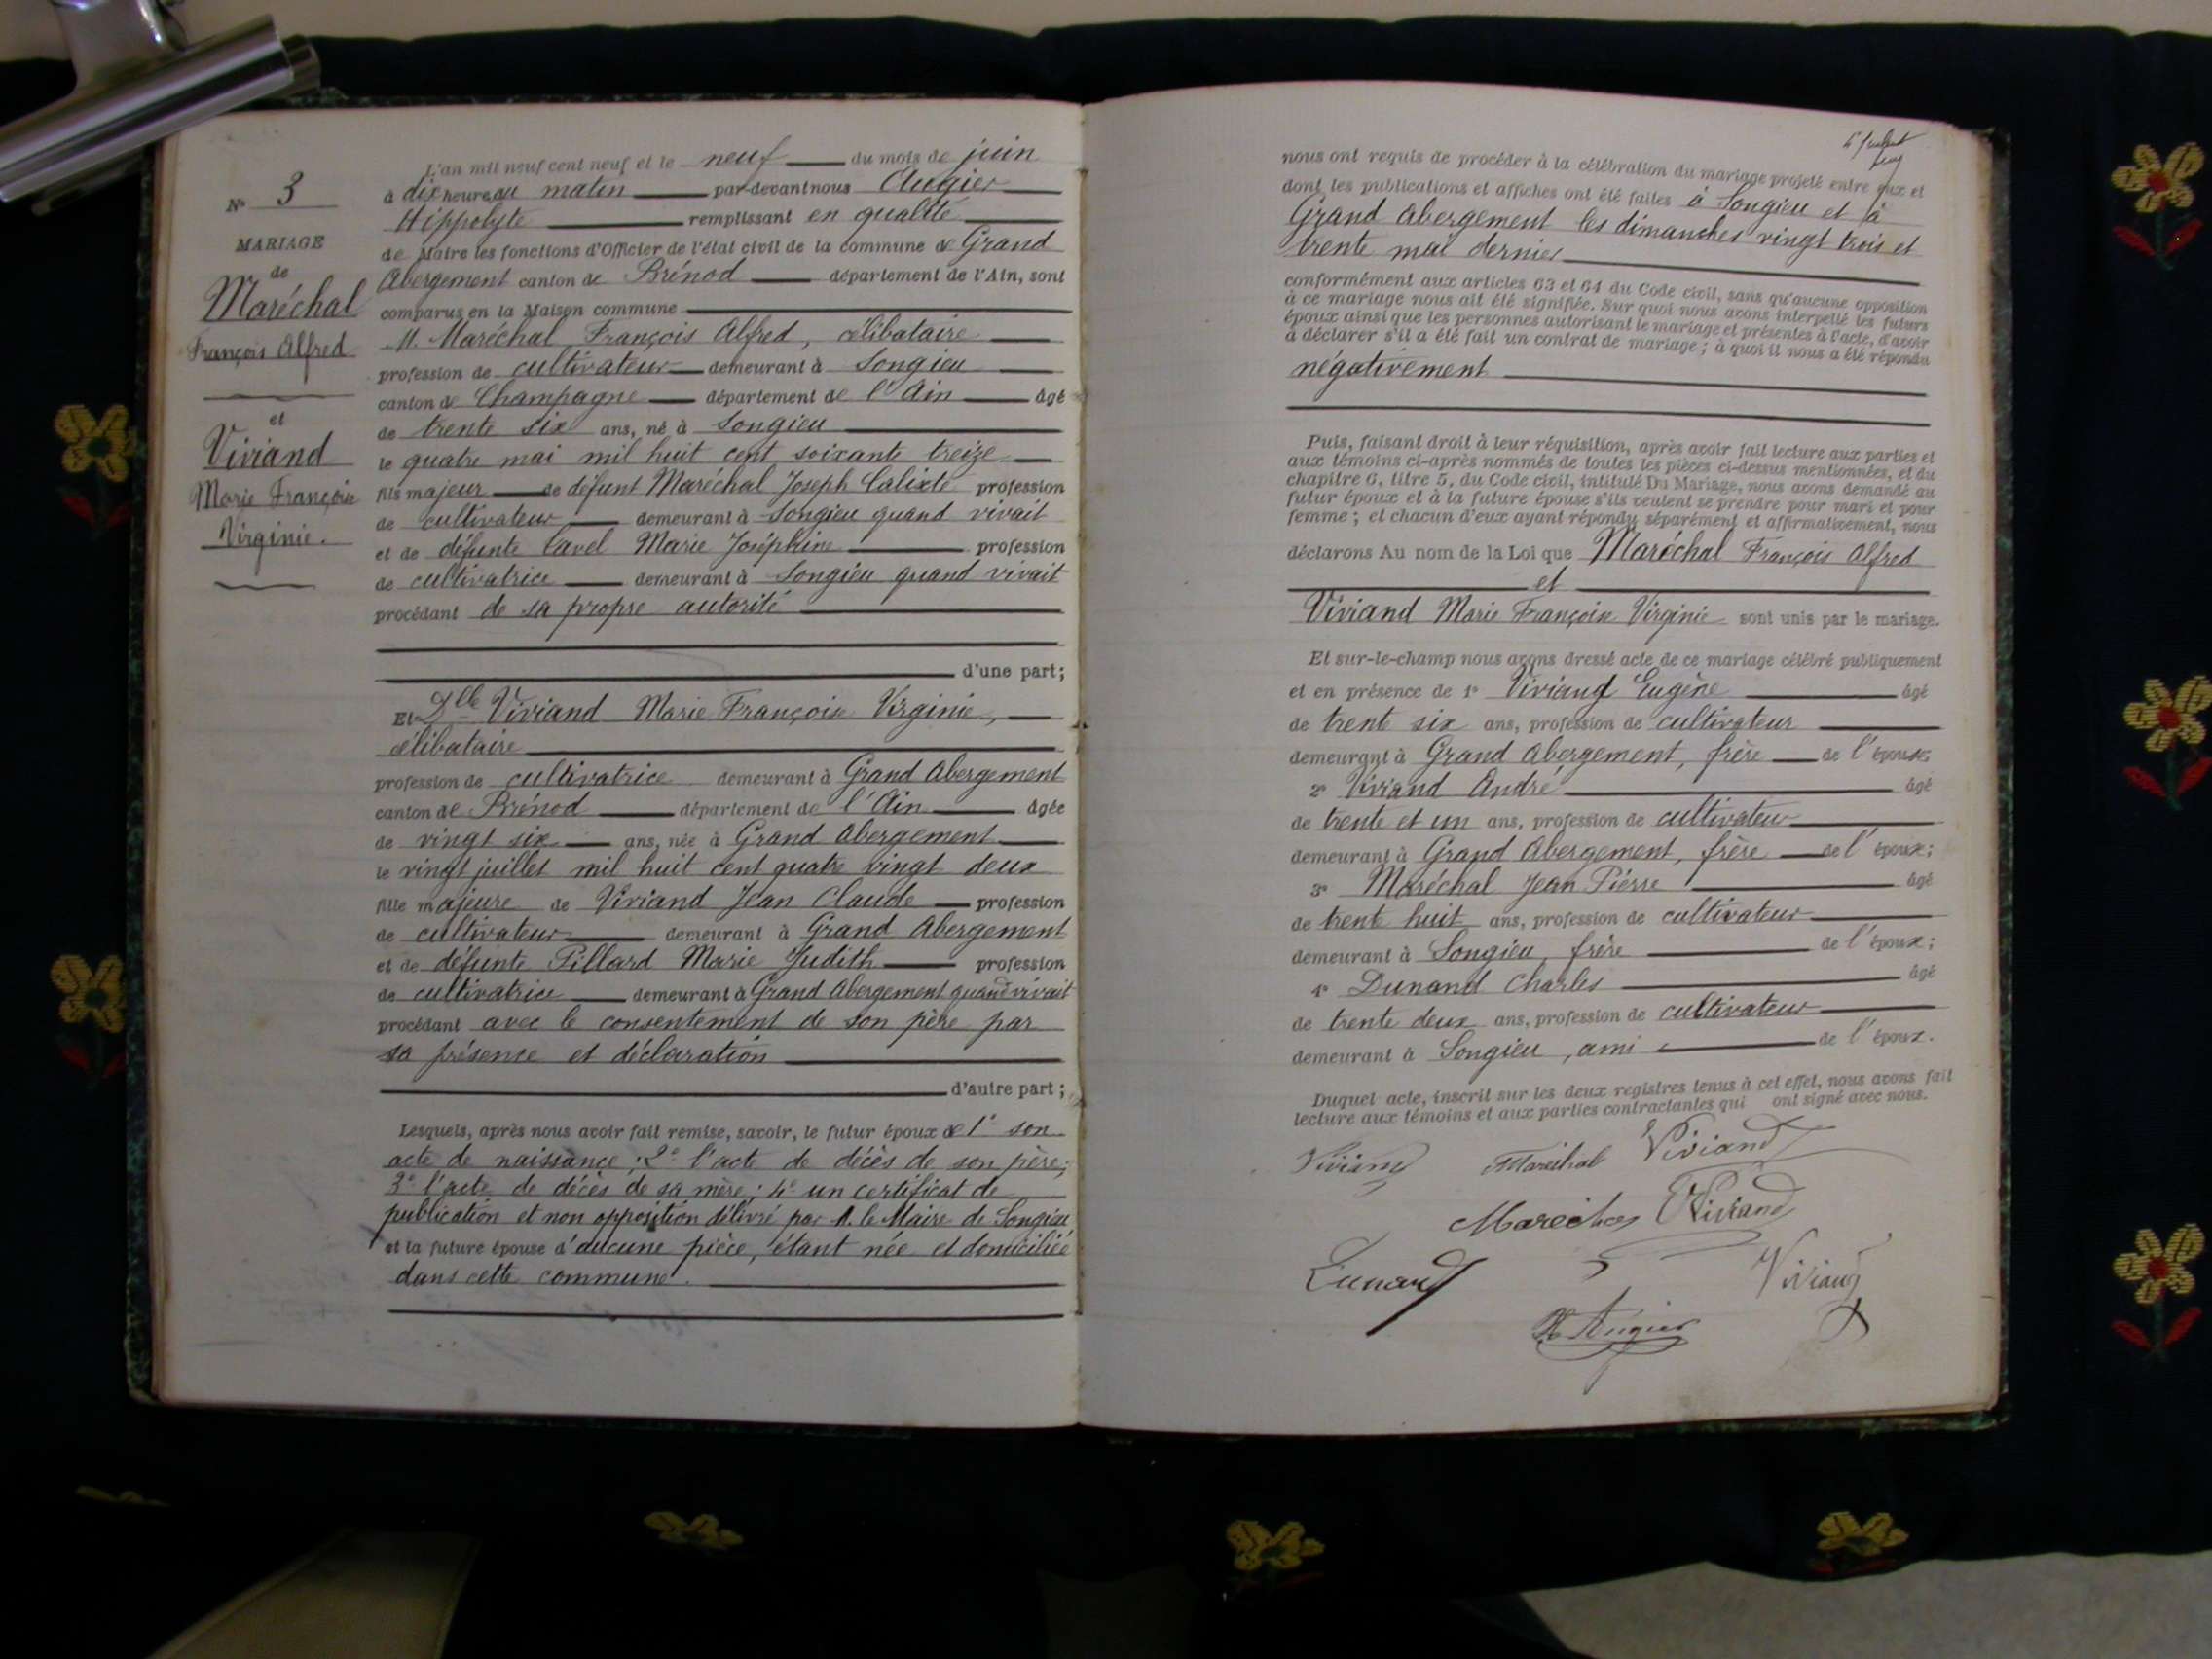 N° 3
MARIAGE
de
Maréchal
François Alfred
et
Viviand
Marie Françoise
Virginie.
L'an mil neuf cent neuf et le neuf du mois de juin
à dix heures du matin par-devant nous Augier
Hippolyte remplissant en qualité
de Maire les fonctions d'Officier de l'état civil de la commune de Grand
Abergement canton de Brénod département de l'Ain, sont
comparus en la Maison commune
M. Maréchal François Alfred, célibataire
profession de cultivateur demeurant à Songieu
canton de Champagne département de l'Ain âgé
de trente six ans, né à Songieu
le quatre mai mil huit cent soixante treize
fils majeur de défunt Maréchal Joseph Calixte profession
de cultivateur demeurant à Songieu quand vivait
et de défunte Cavel Marie Joséphine profession
de cultivatrice demeurant à Songieu quand vivait
procédant de sa propre autorité
d'une part;
Et Dlle Viviand Marie Françoise Virginie,
célibataire
profession de cultivatrice demeurant à Grand Abergement
canton de Brénod département de l'Ain âgée
de vingt six ans, née à Grand Abergement
le vingt juillet mil huit cent quatre vingt deux
fille majeure de Viviand Jean Claude profession
de cultivateur demeurant à Grand Abergement
et de défunte Pillard Marie Judith profession
de cultivatrice demeurant à Grand Abergement quand vivait
procédant avec le consentement de son père par
sa présence et déclaration
d'autre part;
Lesquels, après nous avoir fait remise, savoir, le futur époux de 1° son
acte de naissance; 2° l'acte de décès de son père;
3° l'acte de décès de sa mère; 4° un certificat de
publication et non opposition délivré par M. le Maire de Songieu
et la future épouse d'aucune pièce, étant née et domiciliée
dans cette commune.
nous ont requis de procéder à la célébration du mariage projeté entre eux et
dont les publications et affiches ont été faites à Songieu et à
Grand Abergement les dimanches vingt trois et
trente mai dernier
conformément aux articles 63 et 64 du Code civil, sans qu'aucune opposition
à ce mariage nous ait été signifiée. Sur quoi nous avons interpellé les futurs
époux ainsi que les personnes autorisant le mariage et présentes à l'acte, d'avoir
à déclarer s'il a été fait un contrat de mariage; à quoi il nous a été répondu
négativement
Puis, faisant droit à leur réquisition, après avoir fait lecture aux parties et
aux témoins ci-après nommés de toutes les pièces ci-dessus mentionnées, et du
chapitre 6, titre 5, du Code civil, intitulé Du Mariage, nous avons demandé au
futur époux et à la future épouse s'ils veulent se prendre pour mari et pour
femme; et chacun d'eux ayant répondu séparément et affirmativement, nous
déclarons Au nom de la Loi que Maréchal François Alfred
et
Viviand Marie Françoise Virginie sont unis par le mariage.
Et sur-le-champ nous avons dressé acte de ce mariage célébré publiquement
et en présence de 1° Viviand Eugène âgé
de trente six ans, profession de cultivateur
demeurant à Grand Abergement, frère de l'épouse;
2° Viviand André âgé
de trente et un ans, profession de cultivateur
demeurant à Grand Abergement, frère de l'épouse;
3° Maréchal Jean Pierre âgé
de trente huit ans, profession de cultivateur
demeurant à Songieu, frère de l'époux;
4° Dunand Charles âgé
de trente deux ans, profession de cultivateur
demeurant à Songieu, ami de l'époux.
Duquel acte, inscrit sur les deux registres tenus à cet effet, nous avons fait
lecture aux témoins et aux parties contractantes qui ont signé avec nous.
Viviand Maréchal Viviand
Marechal Viviand
Dunand Viviand
H. Augier